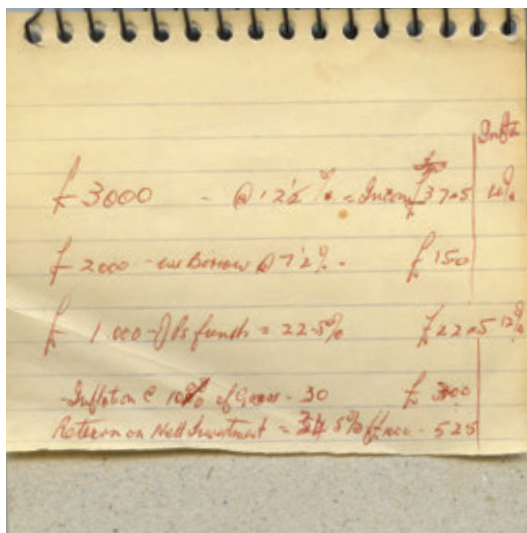 £3000 - @ 12½% = Income £375
10%
£2000 - we Borrow @ 7½% - £150
£1.000 - funds = 22.5% £225 12%
- Inflation @ 10% of Gross - 30 £300
Return on Nett Investment = 5% - 525